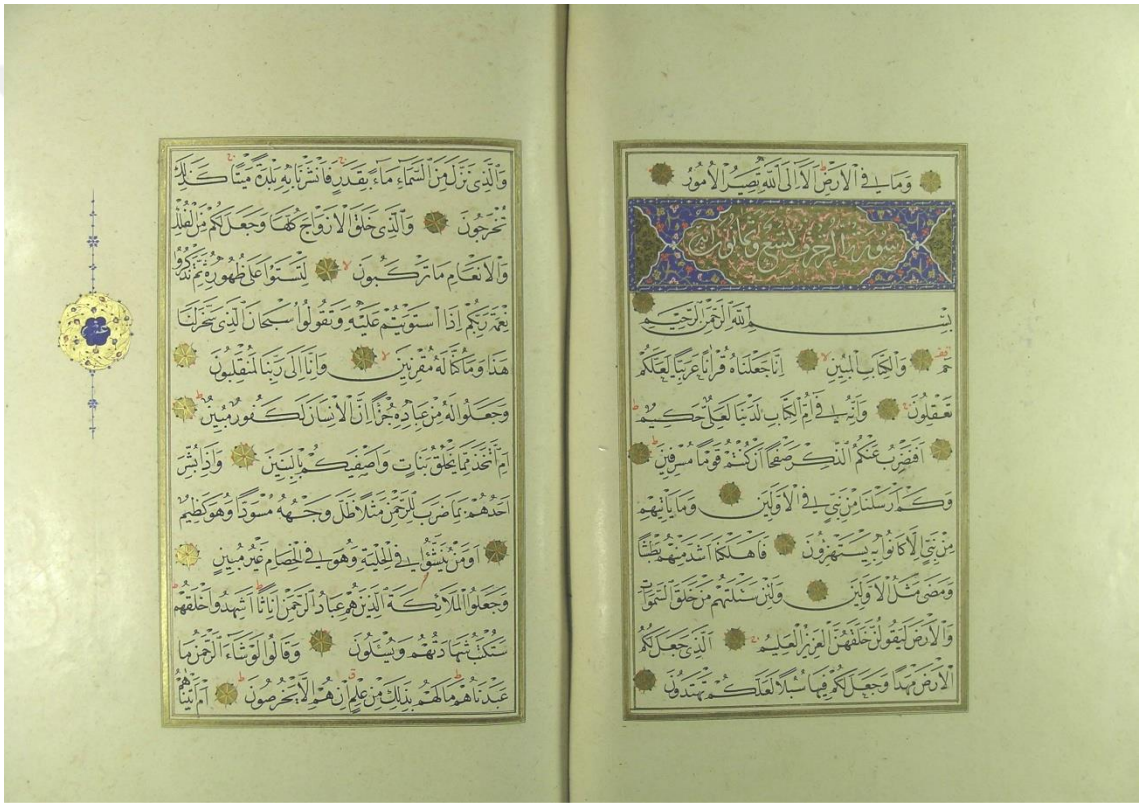 وَمَا فِي الْاَرْضِ اَلَا اِلَى اللّٰهِ تَصِيرُ الْاُمُورُ
سورة الزخرف تسع وثمانون آية
بِسْمِ اللّٰهِ الرَّحْمٰنِ الرَّحِيمِ
حٰمٓ وَالْكِتَابِ الْمُبِينِ اِنَّا جَعَلْنَاهُ قُرْاٰنًا عَرَبِيًّا لَعَلَّكُمْ
تَعْقِلُونَ وَاِنَّهُ فِي اُمِّ الْكِتَابِ لَدَيْنَا لَعَلِيٌّ حَكِيمٌ
اَفَنَضْرِبُ عَنْكُمُ الذِّكْرَ صَفْحًا اَنْ كُنْتُمْ قَوْمًا مُسْرِفِينَ
وَكَمْ اَرْسَلْنَا مِنْ نَبِيٍّ فِي الْاَوَّلِينَ وَمَا يَاْتِيهِمْ
مِنْ نَبِيٍّ اِلَّا كَانُوا بِهِ يَسْتَهْزِؤُنَ فَاَهْلَكْنَا اَشَدَّ مِنْهُمْ بَطْشًا
وَمَضٰى مَثَلُ الْاَوَّلِينَ وَلَئِنْ سَئَلْتَهُمْ مَنْ خَلَقَ السَّمٰوَاتِ
وَالْاَرْضَ لَيَقُولُنَّ خَلَقَهُنَّ الْعَزِيزُ الْعَلِيمُ اَلَّذِي جَعَلَ لَكُمُ
الْاَرْضَ مَهْدًا وَجَعَلَ لَكُمْ فِيهَا سُبُلًا لَعَلَّكُمْ تَهْتَدُونَ
وَالَّذِي نَزَّلَ مِنَ السَّمَاءِ مَاءً بِقَدَرٍ فَاَنْشَرْنَا بِهِ بَلْدَةً مَيْتًا كَذٰلِكَ
تُخْرَجُونَ وَالَّذِي خَلَقَ الْاَزْوَاجَ كُلَّهَا وَجَعَلَ لَكُمْ مِنَ الْفُلْكِ
وَالْاَنْعَامِ مَا تَرْكَبُونَ لِتَسْتَوُا عَلٰى ظُهُورِهِ ثُمَّ تَذْكُرُوا
نِعْمَةَ رَبِّكُمْ اِذَا اسْتَوَيْتُمْ عَلَيْهِ وَتَقُولُوا سُبْحَانَ الَّذِي سَخَّرَ لَنَا
هٰذَا وَمَا كُنَّا لَهُ مُقْرِنِينَ وَاِنَّا اِلٰى رَبِّنَا لَمُنْقَلِبُونَ
وَجَعَلُوا لَهُ مِنْ عِبَادِهِ جُزْءًا اِنَّ الْاِنْسَانَ لَكَفُورٌ مُبِينٌ
اَمِ اتَّخَذَ مِمَّا يَخْلُقُ بَنَاتٍ وَاَصْفٰيكُمْ بِالْبَنِينَ وَاِذَا بُشِّرَ
اَحَدُهُمْ بِمَا ضَرَبَ لِلرَّحْمٰنِ مَثَلًا ظَلَّ وَجْهُهُ مُسْوَدًّا وَهُوَ كَظِيمٌ
اَوَمَنْ يُنَشَّؤُا فِي الْحِلْيَةِ وَهُوَ فِي الْخِصَامِ غَيْرُ مُبِينٍ
وَجَعَلُوا الْمَلٰئِكَةَ الَّذِينَ هُمْ عِبَادُ الرَّحْمٰنِ اِنَاثًا اَشَهِدُوا خَلْقَهُمْ
سَتُكْتَبُ شَهَادَتُهُمْ وَيُسْئَلُونَ وَقَالُوا لَوْ شَاءَ الرَّحْمٰنُ مَا
عَبَدْنَاهُمْ مَا لَهُمْ بِذٰلِكَ مِنْ عِلْمٍ اِنْ هُمْ اِلَّا يَخْرُصُونَ اَمْ اٰتَيْنَاهُمْ